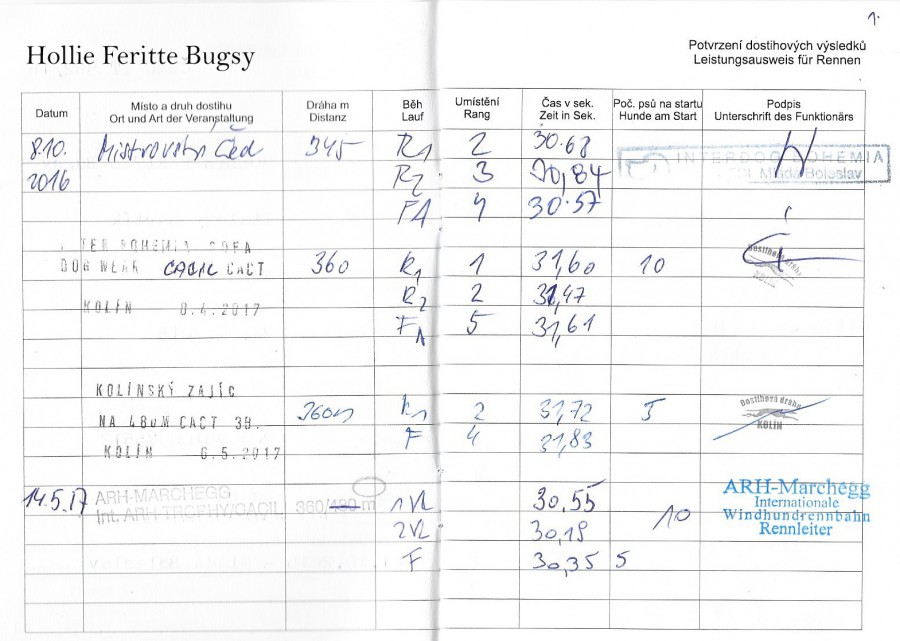 1.
Hollie Feritte Bugsy
Potvrzení dostihových výsledků
Leistungsausweis für Rennen
Datum Místo a druh dostihu Dráha m Běh Umístění Čas v sek. Poč. psů na startu Podpis
Ort und Art der Veranstaltung Distanz Lauf Rang Zeit in Sek. Hunde am Start Unterschrift des Funktionärs
8.10. 345 R1 2 30.68 INTERDOG BOHEMIA
2016 R2 3 30,84 Mladá Boleslav
FA 4 30.57
INTER BOHEMIA
DOG WEAR CACIL CACT 360 R1 1 31,60 10 Dostihová dráha KOLÍN
KOLÍN 8.4.2017 R2 2 31,47
FA 5 31,61
KOLÍNSKÝ ZAJÍC
NA 480M CACT 360m R1 2 31,72 5 Dostihová dráha KOLÍN
KOLÍN 6.5.2017 F 4 31,83
14.5.17 ARH-MARCHEGG 1VL 30.55 ARH-Marchegg
Int. ARH TROPHY/CACIL 360/480 m 2VL 30,19 10 Internationale
Windhundrennbahn
Rennleiter
F 30,35 5